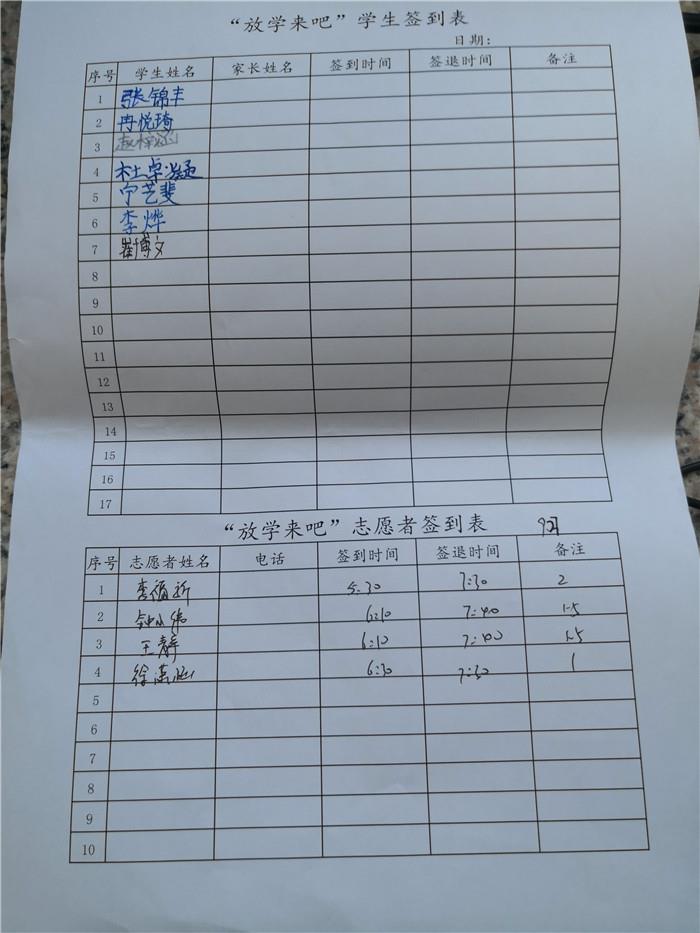 “放学来吧”学生签到表
日期：
序号 学生姓名 家长姓名 签到时间 签退时间 备注
1 张锦丰
2 冉悦琦
3
4 杜卓凝
5 宁艺斐
6 李烨
7 崔博文
8
9
10
11
12
13
14
15
16
17
“放学来吧”志愿者签到表
序号 志愿者姓名 电话 签到时间 签退时间 备注
1 5:30 7:30 2
2 钟小伟 6:10 7:40 1.5
3 王静 6:10 7:40 1.5
4 徐 6:30 7:30 1
5
6
7
8
9
10